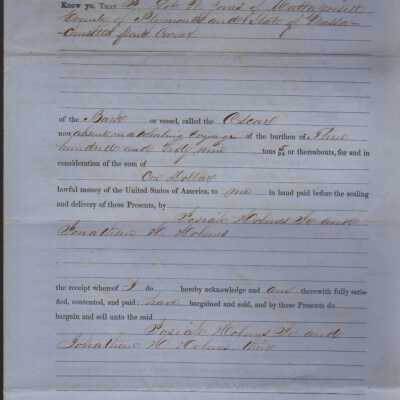 Know ye, THAT I, Job W. Jones of Mattapoisett
County of Plymouth and State of Massa-
chusetts part owner
of the Bark or vessel, called the Oscar
now absent on a whaling voyage of the burthen of Three
hundred and sixty nine tons 5/95 or thereabouts, for and in
consideration of the sum of
One Dollar
lawful money of the United States of America, to me in hand paid before the sealing
and delivery of these Presents, by
Josiah Holmes Jr and
Jonathan H. Holmes
the receipt whereof I do hereby acknowledge and am therewith fully satis-
fied, contented, and paid; have bargained and sold, and by these Presents do
bargain and sell unto the said
Josiah Holmes Jr and
Jonathan H Holmes their